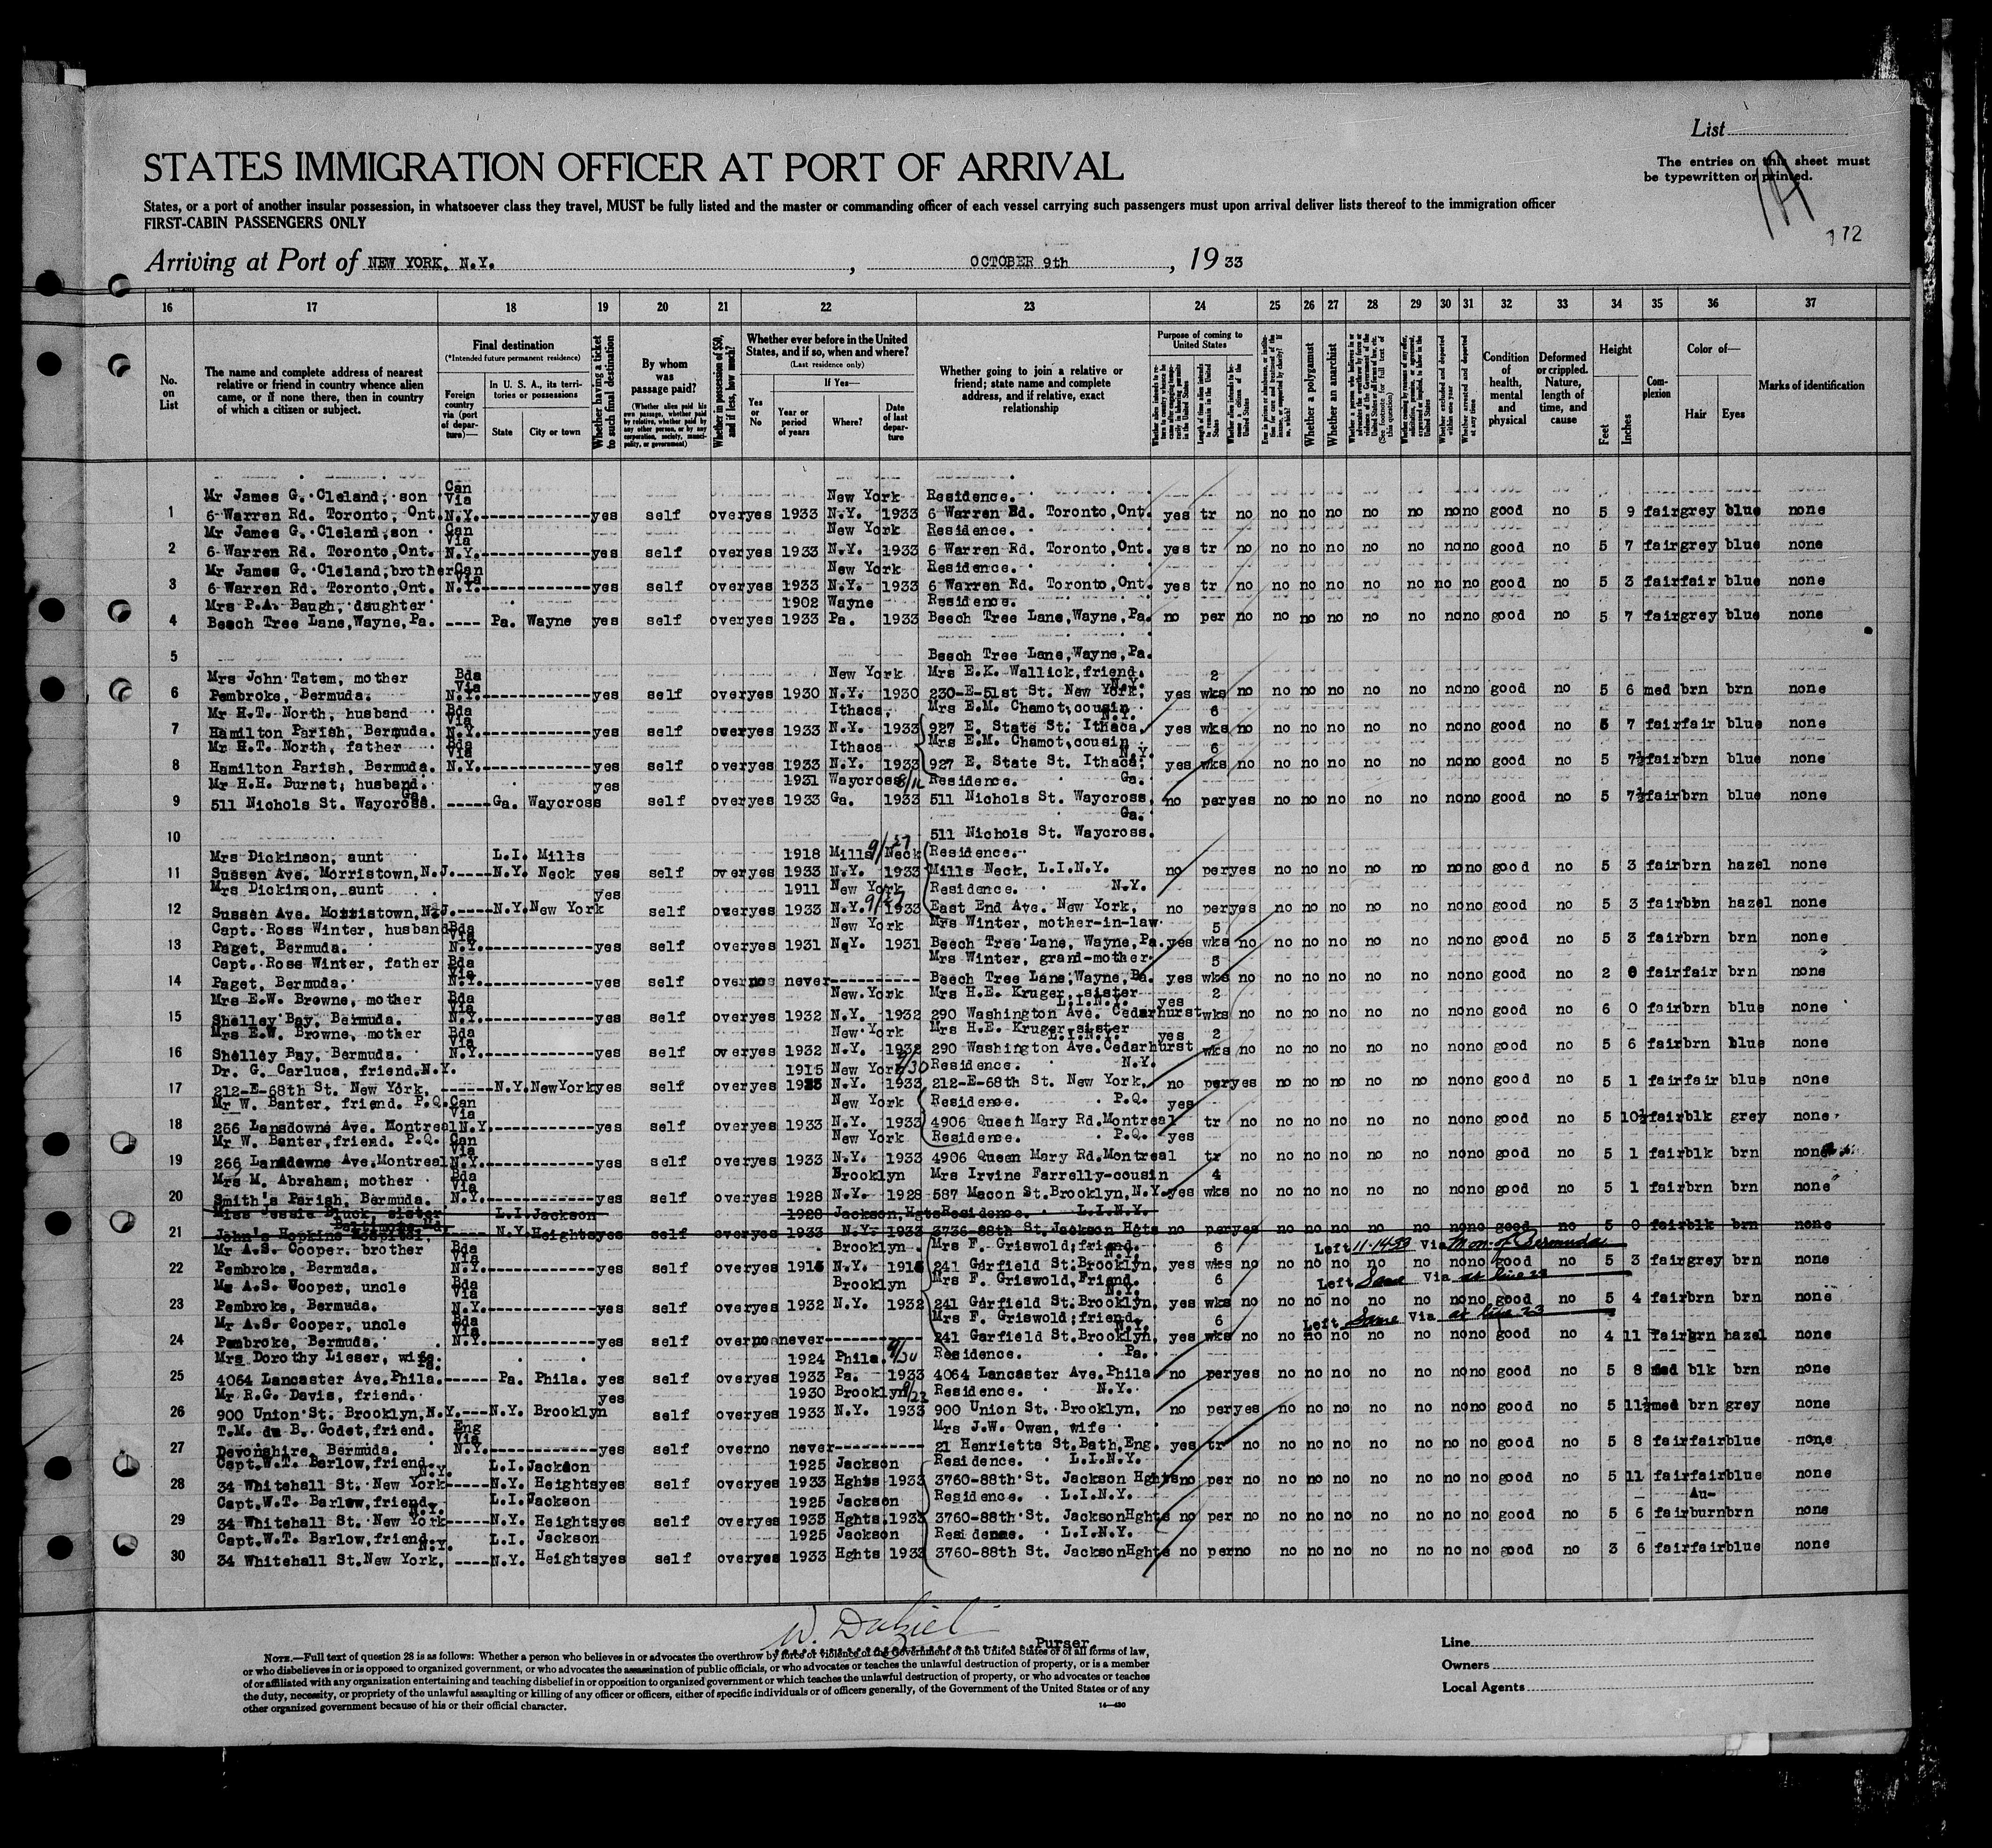 List
STATES IMMIGRATION OFFICER AT PORT OF ARRIVAL
The entries on this sheet must
be typewritten or printed.
States, or a port of another insular possession, in whatsoever class they travel, MUST be fully listed and the master or commanding officer of each vessel carrying such passengers must upon arrival deliver lists thereof to the immigration officer
FIRST-CABIN PASSENGERS ONLY
172
Arriving at Port of NEW YORK, N.Y. , OCTOBER 9th , 19 33
16 17 18 19 20 21 22 23 24 25 26 27 28 29 30 31 32 33 34 35 36 37
No. on List
The name and complete address of nearest relative or friend in country whence alien came, or if none there, then in country of which a citizen or subject.
Final destination
(*Intended future permanent residence)
Foreign country via (port of departure)—
In U. S. A., its territories or possessions
State
City or town
Whether having a ticket to such final destination
By whom was passage paid?
(Whether alien paid his own passage, whether paid by relative, whether paid by any other person, or by any corporation, society, municipality, or government)
Whether in possession of $50, and if less, how much?
Whether ever before in the United States, and if so, when and where?
(Last residence only)
Yes or No
If Yes—
Year or period of years
Where?
Date of last departure
Whether going to join a relative or friend; state name and complete address, and if relative, exact relationship
Purpose of coming to United States
Length of time alien intends to remain in the United States
Whether a polygamist
Whether an anarchist
Condition of health, mental and physical
Deformed or crippled. Nature, length of time, and cause
Height
Feet
Inches
Complexion
Color of—
Hair
Eyes
Marks of identification
Mr James G. Cleland, son Can Via New York Residence.
1 6 Warren Rd. Toronto, Ont. N.Y. yes self over yes 1933 N.Y. 1933 6 Warren Rd. Toronto, Ont. yes tr no no no no no no no no good no 5 9 fair grey blue none
Mr James G. Cleland, son Can Via New York Residence.
2 6 Warren Rd. Toronto, Ont. N.Y. yes self over yes 1933 N.Y. 1933 6 Warren Rd. Toronto, Ont. yes tr no no no no no no no no good no 5 7 fair grey blue none
Mr James G. Cleland, brother Can Via New York Residence.
3 6 Warren Rd. Toronto, Ont. N.Y. yes self over yes 1933 N.Y. 1933 6 Warren Rd. Toronto, Ont. yes tr no no no no no no no no good no 5 3 fair fair blue none
Mrs P.A. Baugh, daughter 1902 Wayne Residence.
4 Beech Tree Lane, Wayne, Pa. ---- Pa. Wayne yes self over yes 1933 Pa. 1933 Beech Tree Lane, Wayne, Pa. no per no no no no no no no no good no 5 7 fair grey blue none
5 Beech Tree Lane, Wayne, Pa.
Mrs John Tatem, mother Bda Via New York Mrs E.K. Wallick, friend. 2
6 Pembroke, Bermuda. N.Y. yes self over yes 1930 N.Y. 1930 230-E-51st St. New York, N.Y. yes wks no no no no no no no no good no 5 6 med brn brn none
Mr H.T. North, husband Bda Via Ithaca, Mrs E.M. Chamot, cousin N.Y. 6
7 Hamilton Parish, Bermuda. N.Y. yes self over yes 1933 N.Y. 1933 927 E. State St. Ithaca, yes wks no no no no no no no no good no 5 7 fair fair blue none
Mr H.T. North, father Bda Via Ithaca Mrs E.M. Chamot, cousin N.Y. 6
8 Hamilton Parish, Bermuda. N.Y. yes self over yes 1933 N.Y. 1933 927 E. State St. Ithaca, yes wks no no no no no no no no good no 5 7½ fair brn blue none
Mr H.H. Burnet, husband. Ga. yes 1931 Waycross Residence. Ga.
9 511 Nichols St. Waycross. ----- Ga. Waycross self over yes 1933 Ga. 1933 511 Nichols St. Waycross, no per yes no no no no no no no good no 5 7½ fair brn blue none
Ga.
10 511 Nichols St. Waycross.
Mrs Dickinson, aunt L.I. Mills 1918 Mills Neck 9/27 Residence.
11 Sussen Ave. Morristown, N.J. ----- N.Y. Neck yes self over yes 1933 N.Y. 1933 Mills Neck, L.I.N.Y. no per yes no no no no no no no good no 5 3 fair brn hazel none
Mrs Dickinson, aunt yes 1911 New York 9/27 Residence. N.Y.
12 Sussen Ave. Morristown, N.J. ---- N.Y. New York self over yes 1933 N.Y. 1933 East End Ave. New York, no per yes no no no no no no no good no 5 3 fair brn hazel none
Capt. Ross Winter, husband Bda Via New York Mrs Winter, mother-in-law 5
13 Paget, Bermuda. N.Y. yes self over yes 1931 N.Y. 1931 Beech Tree Lane, Wayne, Pa. yes wks no no no no no no no no good no 5 3 fair brn brn none
Capt. Ross Winter, father Bda Via Mrs Winter, grand-mother. 5
14 Paget, Bermuda. N.Y. yes self over no never Beech Tree Lane, Wayne, Pa. yes wks no no no no no no no no good no 2 0 fair fair brn none
Mrs E.W. Browne, mother Bda Via New York Mrs H.E. Kruger, sister L.I.N.Y. yes 2
15 Shelley Bay, Bermuda. N.Y. yes self over yes 1932 N.Y. 1932 290 Washington Ave. Cedarhurst wks no no no no no no no no good no 6 0 fair brn blue none
Mrs E.W. Browne, mother Bda Via New York Mrs H.E. Kruger, sister L.I.N.Y. yes 2
16 Shelley Bay, Bermuda. N.Y. yes self over yes 1932 N.Y. 1932 290 Washington Ave. Cedarhurst wks no no no no no no no no good no 5 6 fair brn blue none
Dr. G. Carluca, friend. N.Y. 1915 New York 9/30 Residence. N.Y.
17 212-E-68th St. New York, ------ N.Y. New York yes self over yes N.Y. 1933 212-E-68th St. New York, no per yes no no no no no no no good no 5 1 fair fair blue none
Mr W. Banter, friend. P.Q. Can Via New York Residence. P.Q. yes
18 266 Lansdowne Ave. Montreal N.Y. yes self over yes 1933 N.Y. 1933 4906 Queen Mary Rd. Montreal tr no no no no no no no no good no 5 10½ fair blk grey none
Mr W. Banter, friend. P.Q. Can Via New York Residence. P.Q. yes
19 266 Lansdowne Ave. Montreal N.Y. yes self over yes 1933 N.Y. 1933 4906 Queen Mary Rd. Montreal tr no no no no no no no no good no 5 1 fair blk brn none
Mrs M. Abraham, mother Bda Via Brooklyn Mrs Irvine Farrelly-cousin 4
20 Smith's Parish, Bermuda. N.Y. yes self over yes 1928 N.Y. 1928 587 Macon St. Brooklyn, N.Y. yes wks no no no no no no no no good no 5 1 fair brn brn none
Miss Jessie Bluck, sister Baltimore, Md. L.I. Jackson 1928 Jackson, Hgts Residence. L.I.N.Y.
21 John's Hopkins Hospital, N.Y. Heights yes self over yes 1933 N.Y. 1933 3736-88th St. Jackson Hgts no per yes no no no no no no no good no 5 0 fair blk brn none
Mr A.S. Cooper. brother Bda Via Brooklyn Mrs F. Griswold, friend. N.Y. 6 Left 11-14-33 Via Mon. of Bermuda
22 Pembroke, Bermuda. N.Y. yes self over yes N.Y. 241 Garfield St. Brooklyn, yes wks no no no no no no no no good no 5 3 fair grey brn none
Mr A.S. Cooper, uncle Bda Via Brooklyn Mrs F. Griswold, Friend. N.Y. 6 Left Same Via as line 23
23 Pembroke, Bermuda. N.Y. yes self over yes 1932 N.Y. 1932 241 Garfield St. Brooklyn, yes wks no no no no no no no no good no 5 4 fair brn brn none
Mr A.S. Cooper, uncle Bda Via Mrs F. Griswold, friend N.Y. 6 Left Same Via as line 23
24 Pembroke, Bermuda. N.Y. yes self over no never 241 Garfield St. Brooklyn, yes wks no no no no no no no no good no 4 11 fair brn hazel none
Mrs Dorothy Lieser, wife. Pa. 1924 Phila. 9/30 Residence. Pa.
25 4064 Lancaster Ave. Phila. ----- Pa. Phila. yes self over yes 1933 Pa. 1933 4064 Lancaster Ave. Phila no per yes no no no no no no no good no 5 8 med blk brn none
Mr R.G. Davis, friend. yes 1930 Brooklyn Residence. N.Y.
26 900 Union St. Brooklyn, N.Y. --- N.Y. Brooklyn self over yes 1933 N.Y. 1933 900 Union St. Brooklyn, no per yes no no no no no no no good no 5 11½ med brn grey none
T.M. du B. Godet, friend. Eng Via Mrs J.W. Owen, wife
27 Devonshire, Bermuda. N.Y. yes self over no never 21 Henrietta St. Bath, Eng. yes tr no no no no no no no no good no 5 8 fair fair blue none
Capt. W.T. Barlow, friend. N.Y. L.I. Jackson 1925 Jackson Residence. L.I.N.Y.
28 34 Whitehall St. New York ----- N.Y. Heights yes self over yes 1933 Hghts 1933 3760-88th St. Jackson Hghts no per no no no no no no no no good no 5 11 fair fair blue none
Capt. W.T. Barlow, friend, N.Y. L.I. Jackson 1925 Jackson Residence. L.I.N.Y. Au-
29 34 Whitehall St. New York ----- N.Y. Heights yes self over yes 1933 Hghts. 1933 3760-88th St. Jackson Hghts no per no no no no no no no no good no 5 6 fair burn brn none
Capt. W.T. Barlow, friend. N.Y. L.I. Jackson 1925 Jackson Residence. L.I.N.Y.
30 34 Whitehall St. New York, ---- N.Y. Heights yes self over yes 1933 Hghts 1933 3760-88th St. Jackson Hghts no per no no no no no no no no good no 3 6 fair fair blue none
W. Dalziel
Purser.
NOTE.—Full text of question 28 is as follows: Whether a person who believes in or advocates the overthrow by force or violence of the Government of the United States or of all forms of law,
or who disbelieves in or is opposed to organized government, or who advocates the assassination of public officials, or who advocates or teaches the unlawful destruction of property, or is a member
of or affiliated with any organization entertaining and teaching disbelief in or opposition to organized government or which teaches the unlawful destruction of property, or who advocates or teaches
the duty, necessity, or propriety of the unlawful assaulting or killing of any officer or officers, either of specific individuals or of officers generally, of the Government of the United States or of any
other organized government because of his or their official character.
14—430
Line
Owners
Local Agents